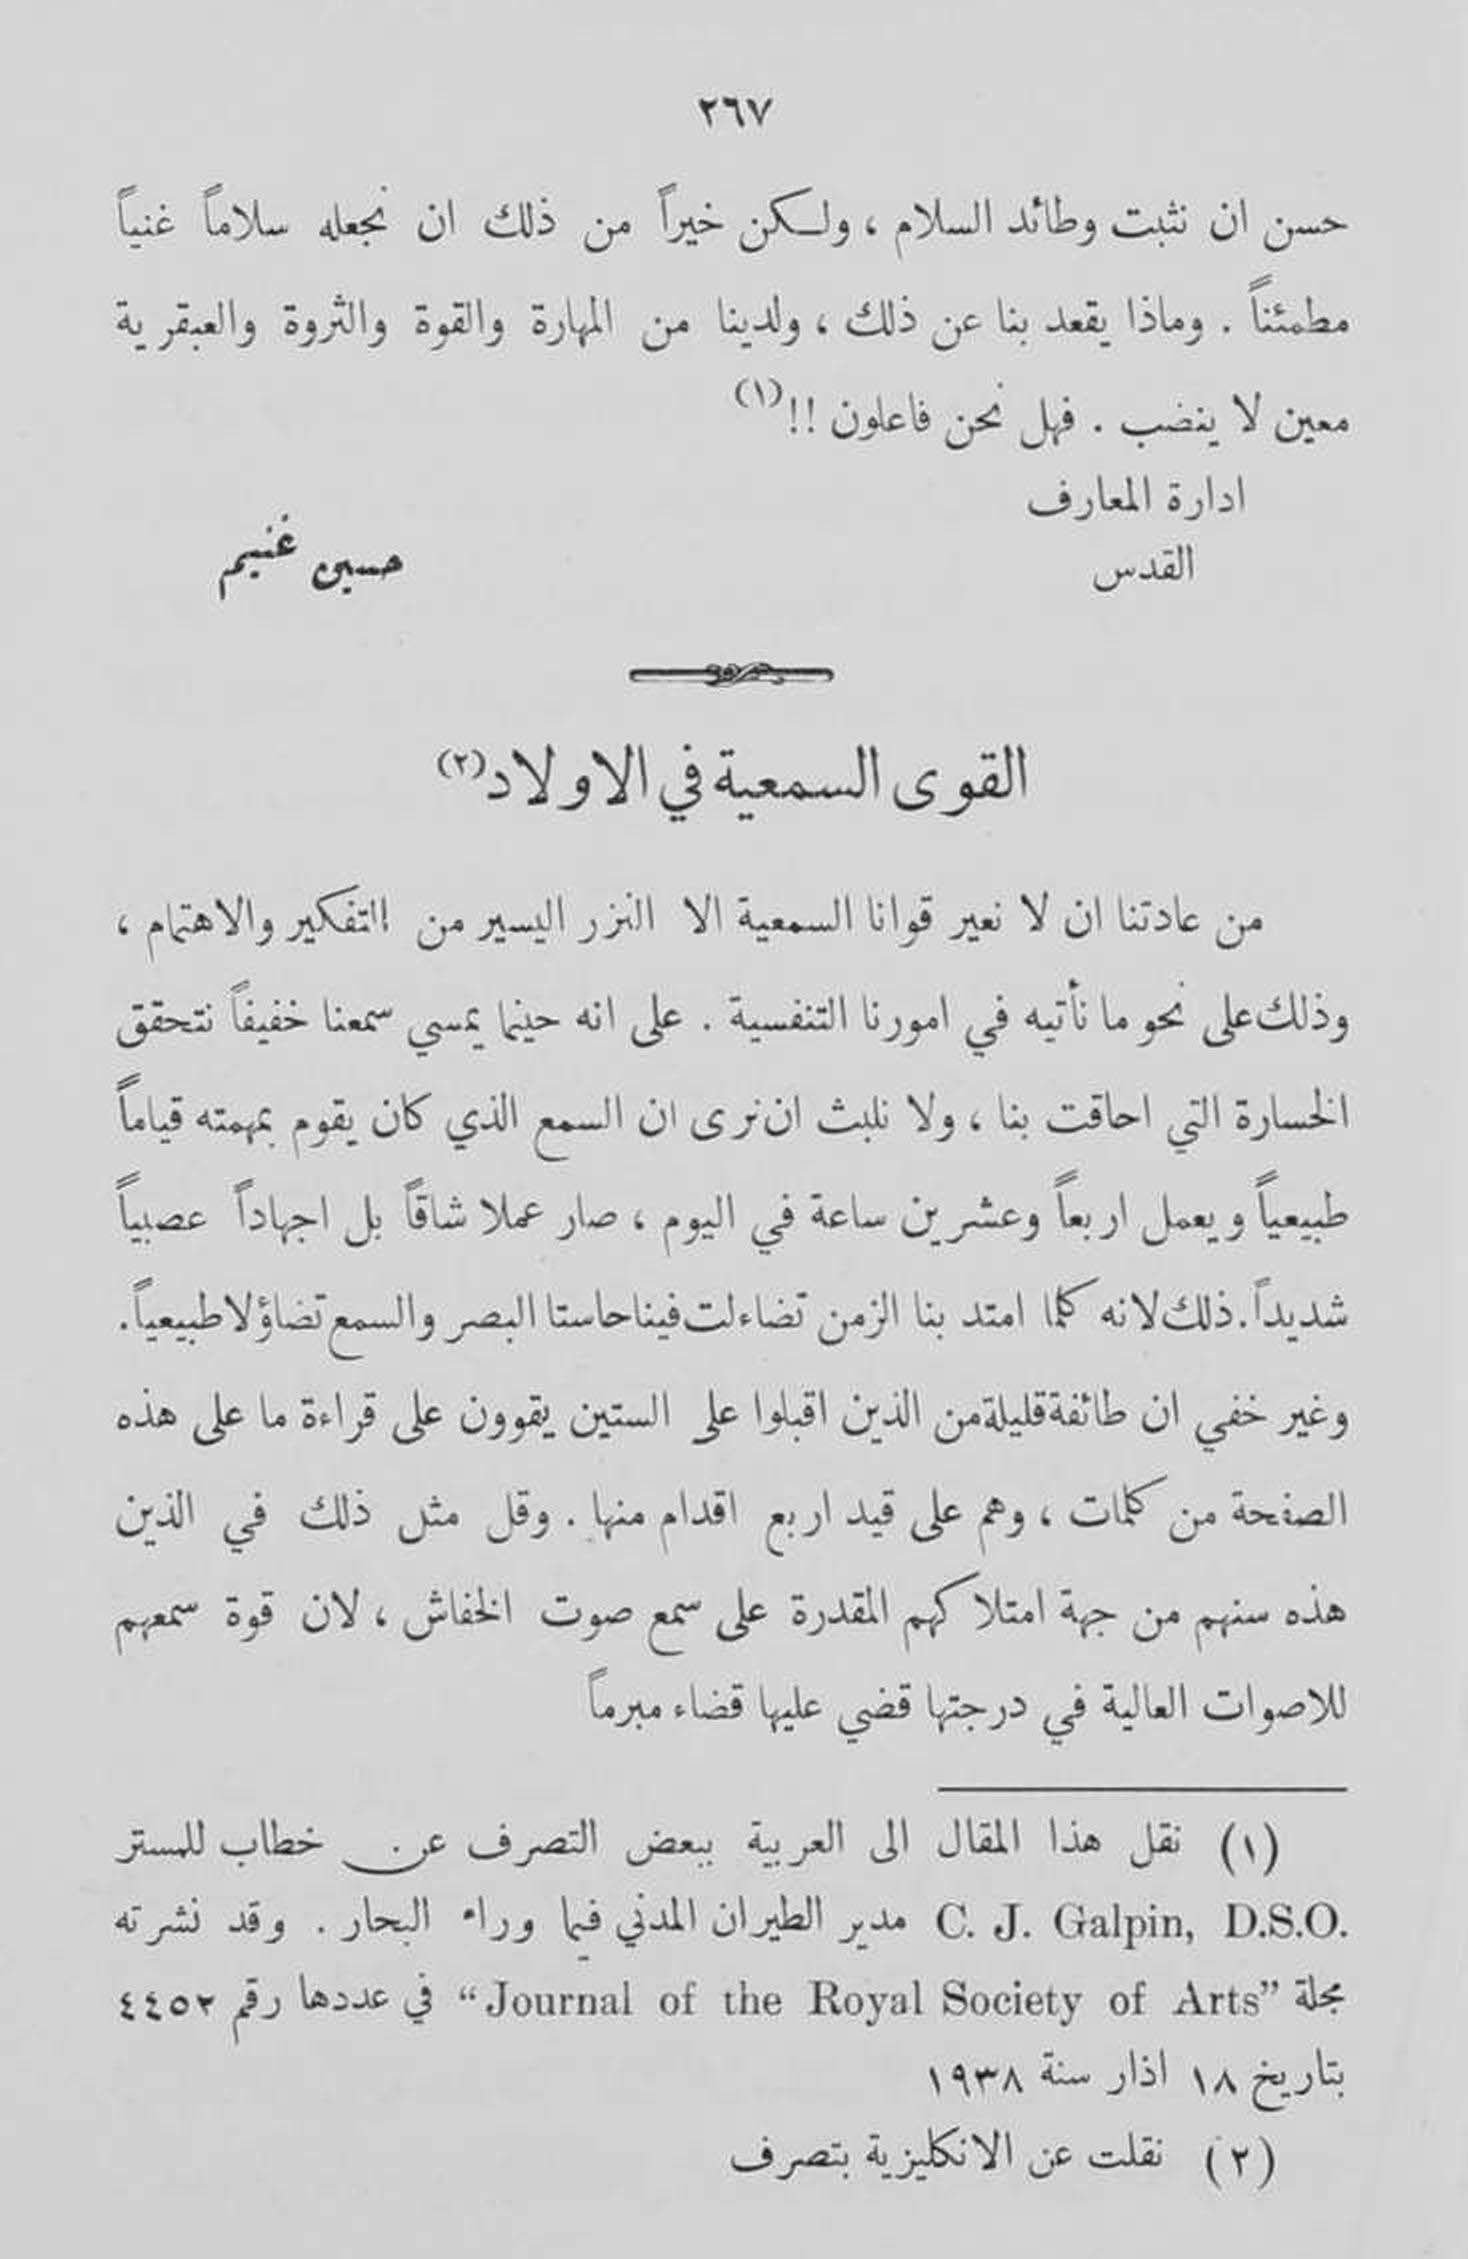 ٢٦٧
حسن ان نثبت وطائد السلام ، ولكن خيراً من ذلك ان نجعله سلاماً غنياً
مطمئناً . وماذا يقعد بنا عن ذلك ، ولدينا من المهارة والقوة والثروة والعبقرية
معين لا ينضب . فهل نحن فاعلون !! (١)
ادارة المعارف
القدس
حسين غنيم
القوى السمعية في الاولاد (٢)
من عادتنا ان لا نعير قوانا السمعية الا النزر اليسير من التفكير والاهتمام ،
وذلك على نحو ما نأتيه في امورنا التنفسية . على انه حينما يمسي سمعنا خفيفاً نتحقق
الخسارة التي احاقت بنا ، ولا نلبث ان نرى ان السمع الذي كان يقوم بمهمته قياماً
طبيعياً ويعمل اربعاً وعشرين ساعة في اليوم ، صار عملا شاقاً بل اجهاداً عصبياً
شديداً . ذلك لانه كلما امتد بنا الزمن تضاءلت فينا حاستا البصر والسمع تضاؤلا طبيعياً .
وغير خفي ان طائفة قليلة من الذين اقبلوا على الستين يقوون على قراءة ما على هذه
الصفحة من كلمات ، وهم على قيد اربع اقدام منها . وقل مثل ذلك في الذين
هذه سنهم من جهة امتلاكهم المقدرة على سمع صوت الخفاش ، لان قوة سمعهم
للاصوات العالية في درجتها قضي عليها قضاء مبرماً
(١) نقل هذا المقال الى العربية ببعض التصرف عن خطاب للمستر
C. J. Galpin, D.S.O. مدير الطيران المدني فيما وراء البحار . وقد نشرته
مجلة "Journal of the Royal Society of Arts" في عددها رقم ٤٤٥٢
بتاريخ ١٨ اذار سنة ١٩٣٨
(٢) نقلت عن الانكليزية بتصرف